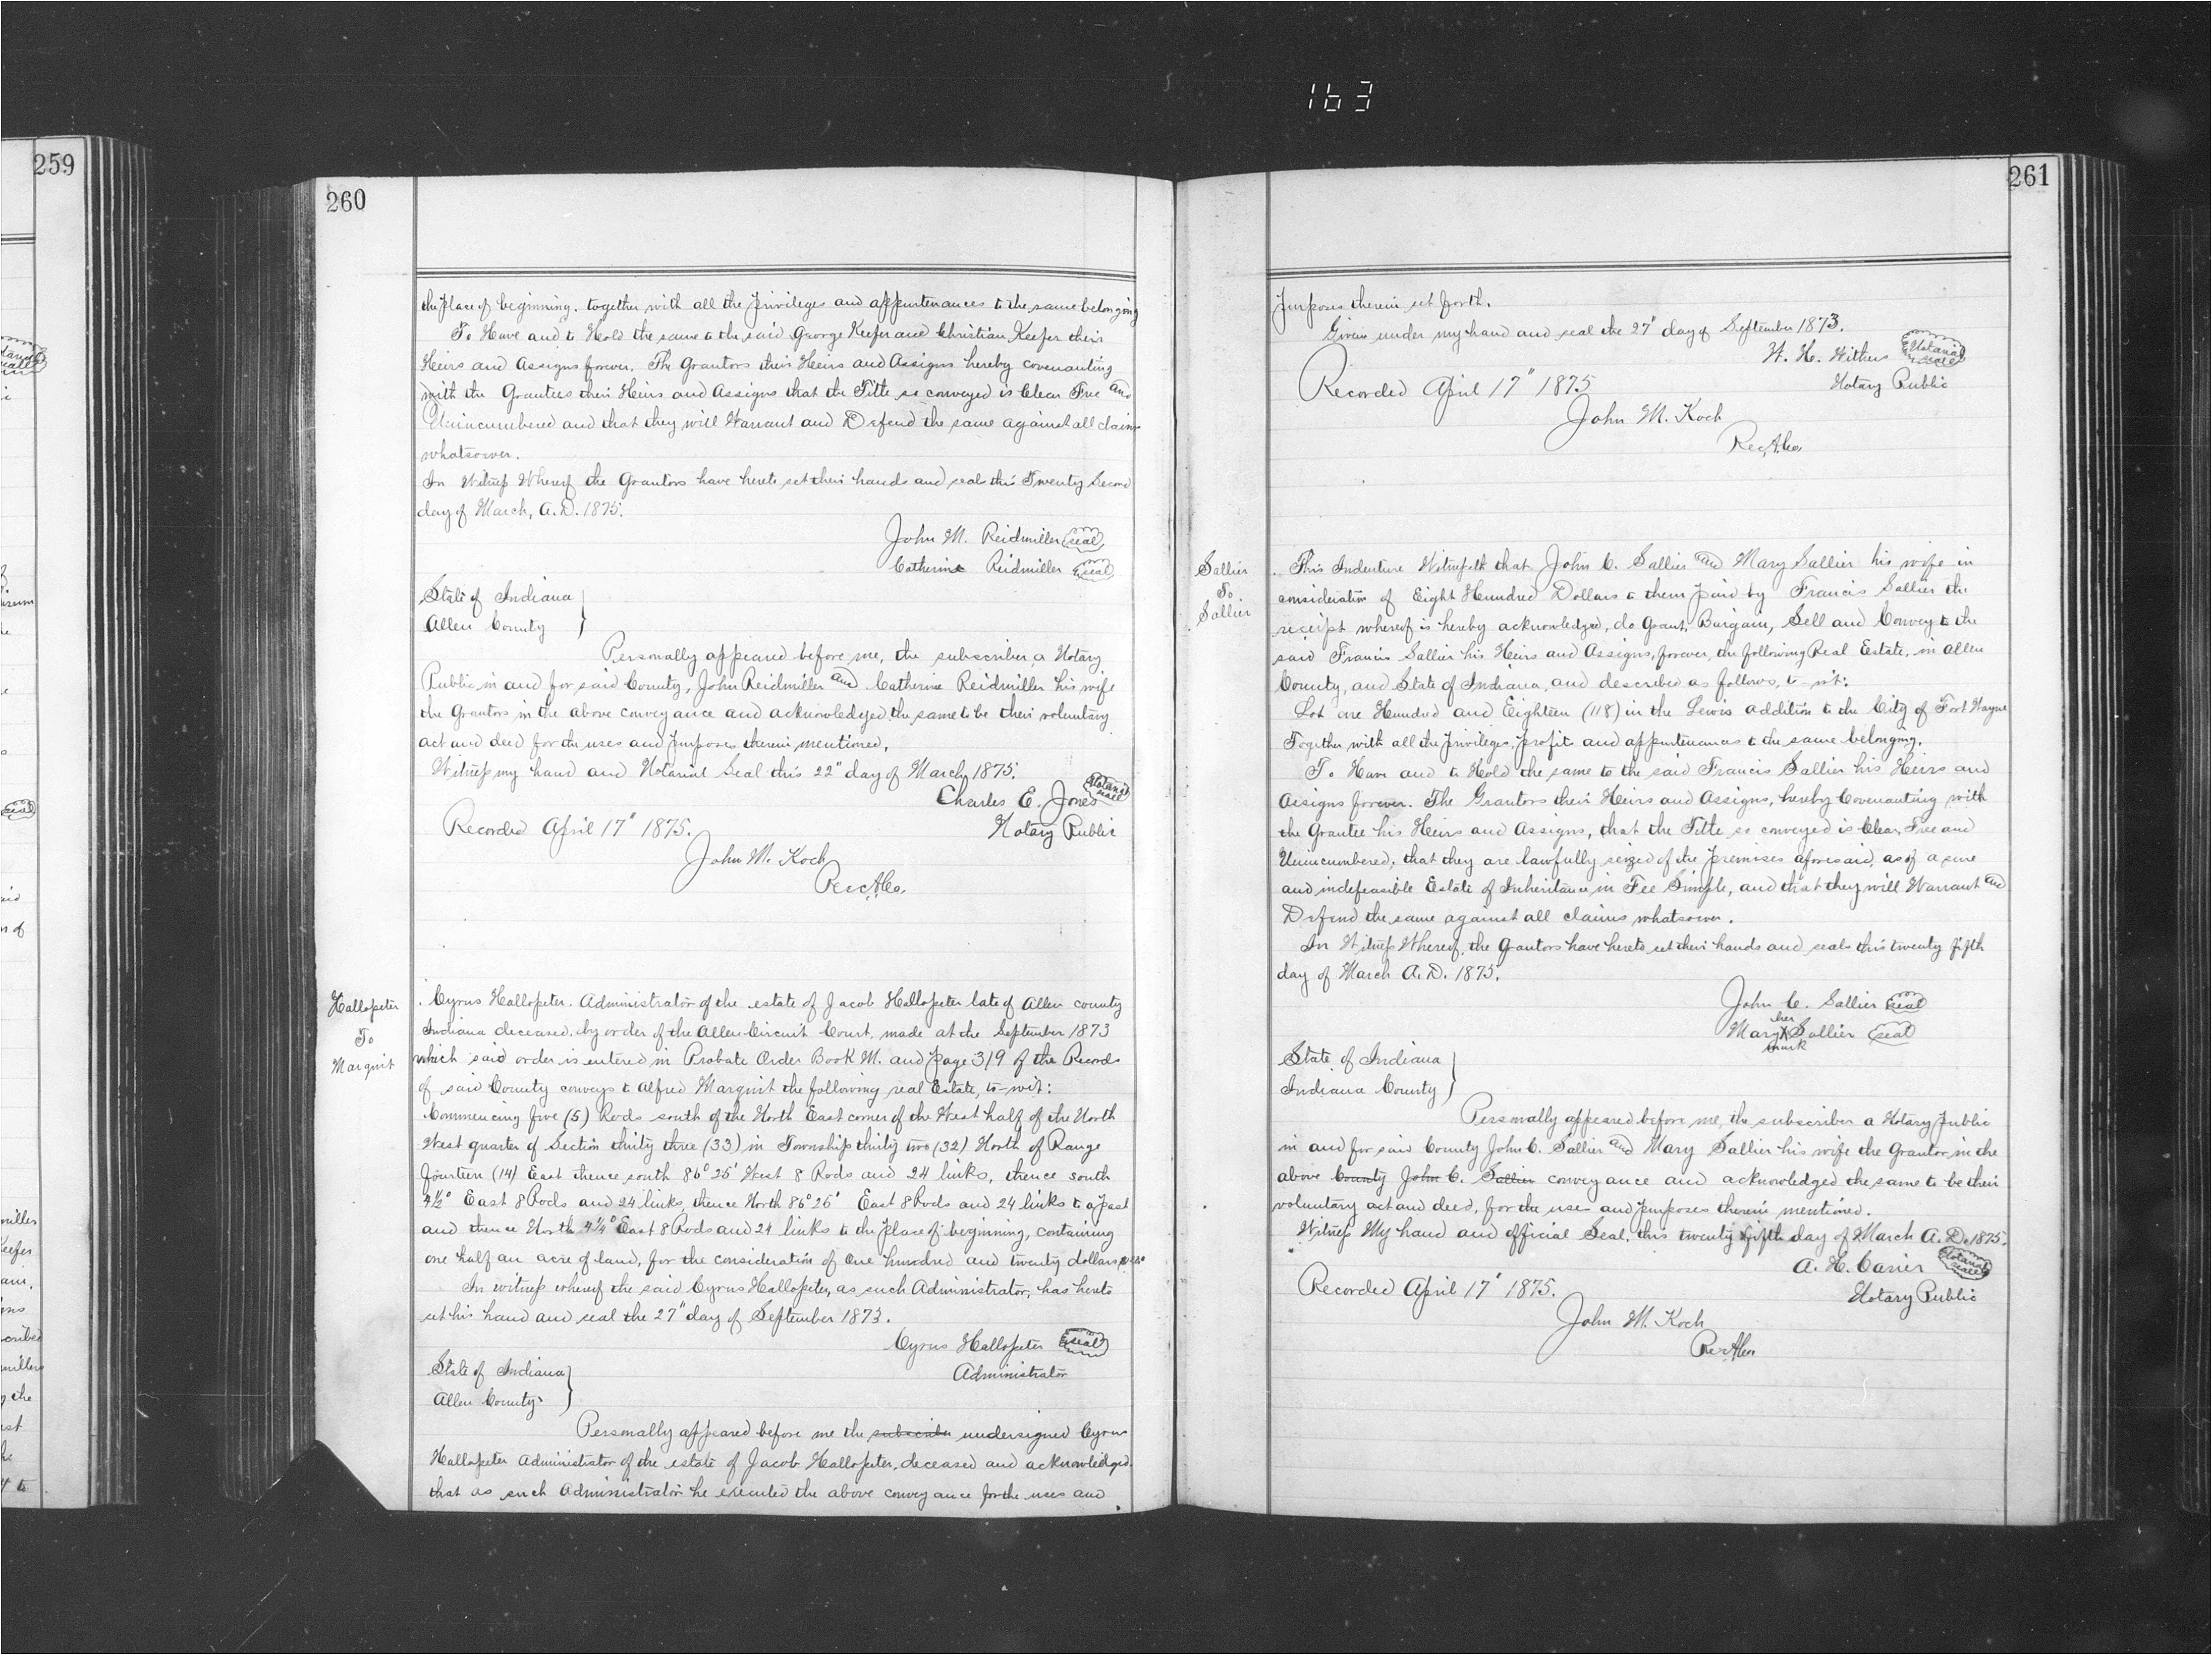 163
259
260
the place of beginning. together with all the privileges and appurtenances to the same belonging
To Have and to Hold the same to the said George Keefer and Christian Keefer their
Heirs and Assigns forever. The Grantors their Heirs and Assigns hereby covenanting
with the Grantees their Heirs and Assigns that the Title so conveyed is Clear Free and
Unincumbered and that they will Warrant and Defend the same against all claims
whatsoever.
In Witness Whereof the Grantors have hereto set their hands and seals this Twenty Second
day of March, A.D. 1875.
John M. Reidmiller seal
Catherine Reidmiller seal
State of Indiana
Allen County
Personally appeared before me, the subscriber, a Notary
Public in and for said County, John Reidmiller and Catherine Reidmiller his wife
the Grantors in the above conveyance and acknowledged the same to be their voluntary
act and deed for the uses and purposes therein mentioned.
Witness my hand and Notarial Seal this 22" day of March 1875.
Charles E. Jones Notarial seal
Recorded April 17" 1875. Notary Public
John M. Koch
Rec. A. Co.
Hallopeter
To
Marquit
Cyrus Hallopeter. Administrator of the estate of Jacob Hallopeter late of Allen county
Indiana deceased. by order of the Allen Circuit Court, made at the September 1873
which said order is entered in Probate Order Book M. and page 319 of the Records
of said County conveys to Alfred Marquit the following real Estate, to-wit:
Commencing five (5) Rods south of the North East corner of the West half of the North
West quarter of Section thirty three (33) in Township thirty two (32) North of Range
fourteen (14) East thence south 86° 25' West 8 Rods and 24 links, thence south
4½° East 8 Rods and 24 links, thence North 86° 25' East 8 Rods and 24 links to a post
and thence North 4¼° East 8 Rods and 24 links to the place of beginning, containing
one half an acre of land, for the consideration of One hundred and twenty dollars
In witness whereof the said Cyrus Hallopeter, as such Administrator, has hereto
set his hand and seal the 27" day of September 1873.
Cyrus Hallopeter seal
State of Indiana Administrator
Allen County
Personally appeared before me the subscriber undersigned Cyrus
Hallopeter Administrator of the estate of Jacob Hallopeter, deceased and acknowledged
that as such Administrator he executed the above conveyance for the uses and
261
purposes therein set forth.
Given under my hand and seal the 27" day of September 1873.
W. H. Withers Notarial seal
Recorded April 17" 1875 Notary Public
John M. Koch
Rec. A. Co.
Sallier
To
Sallier
This Indenture Witnesseth that John C. Sallier and Mary Sallier his wife in
consideration of Eight Hundred Dollars to them paid by Francis Sallier the
receipt whereof is hereby acknowledged, do Grant, Bargain, Sell and Convey to the
said Francis Sallier his Heirs and Assigns, forever, the following Real Estate, in Allen
County, and State of Indiana, and described as follows, to-wit:
Lot one Hundred and Eighteen (118) in the Lewis addition to the City of Fort Wayne
Together with all the privileges, profits and appurtenances to the same belonging.
To Have and to Hold the same to the said Francis Sallier his Heirs and
Assigns forever. The Grantors their Heirs and Assigns, hereby Covenanting with
the Grantee his Heirs and Assigns, that the Title so conveyed is Clear, Free and
Unincumbered; that they are lawfully seized of the premises aforesaid, as of a sure
and indefeasible Estate of Inheritance, in Fee Simple, and that they will Warrant and
Defend the same against all claims whatsoever.
In Witness Whereof, the Grantors have hereto set their hands and seals this twenty fifth
day of March A.D. 1875.
John C. Sallier seal
Mary her X mark Sallier seal
State of Indiana
Indiana County
Personally appeared before me, the subscriber a Notary Public
in and for said County John C. Sallier and Mary Sallier his wife the Grantor in the
above County John C. Sallier conveyance and acknowledged the same to be their
voluntary act and deed, for the uses and purposes therein mentioned.
Witness My hand and official Seal, this twenty fifth day of March A.D. 1875.
A. H. Carier Notarial seal
Recorded April 17" 1875. Notary Public
John M. Koch
Rec. A. Co.